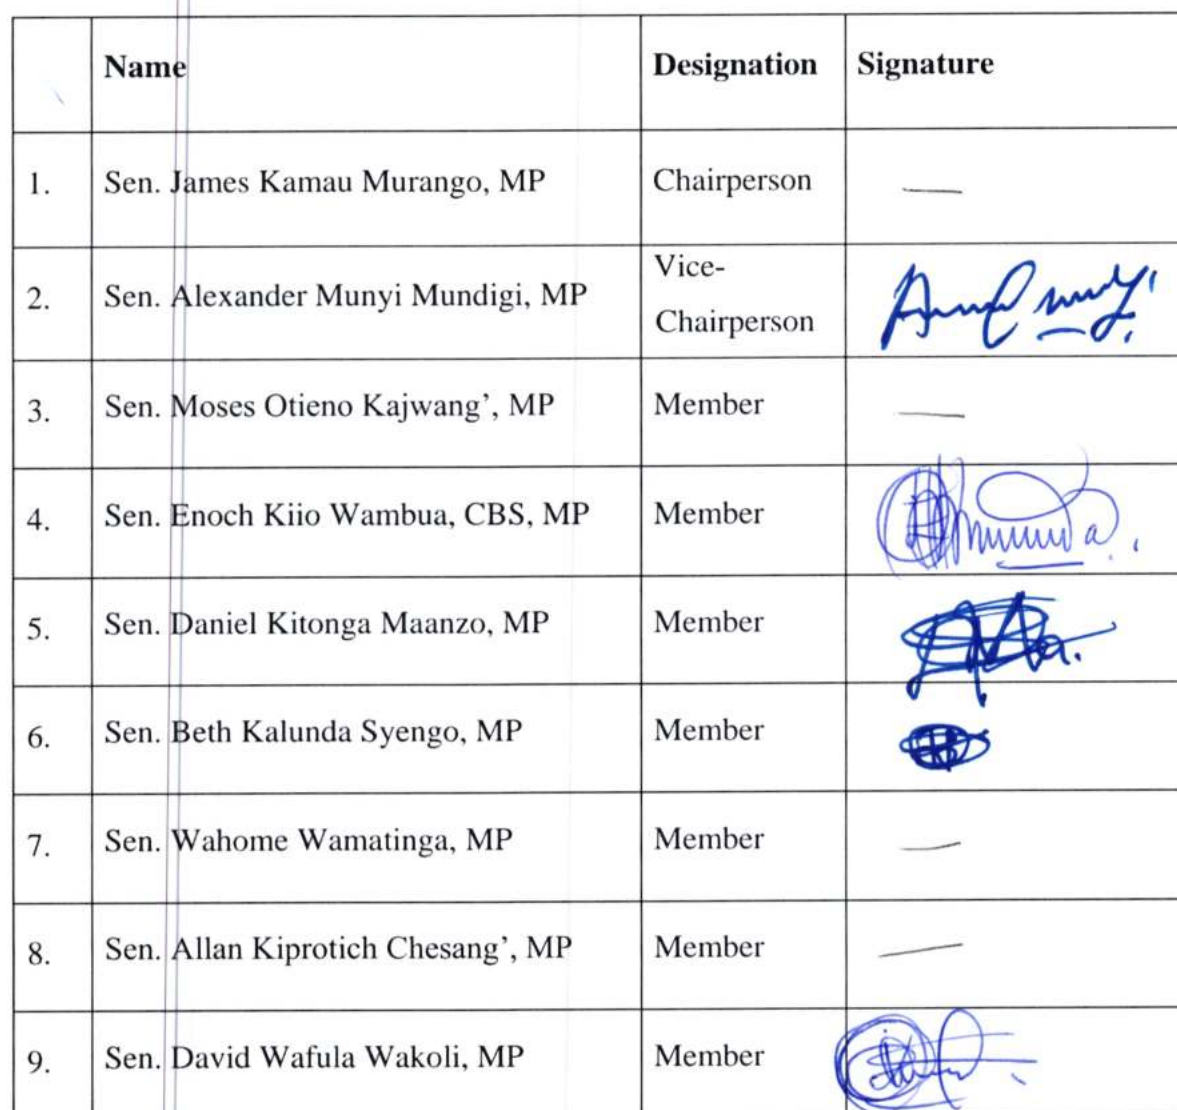 Name Designation Signature
1. Sen. James Kamau Murango, MP Chairperson —
2. Sen. Alexander Munyi Mundigi, MP Vice-
Chairperson
3. Sen. Moses Otieno Kajwang’, MP Member —
4. Sen. Enoch Kiio Wambua, CBS, MP Member
5. Sen. Daniel Kitonga Maanzo, MP Member
6. Sen. Beth Kalunda Syengo, MP Member
7. Sen. Wahome Wamatinga, MP Member —
8. Sen. Allan Kiprotich Chesang’, MP Member —
9. Sen. David Wafula Wakoli, MP Member